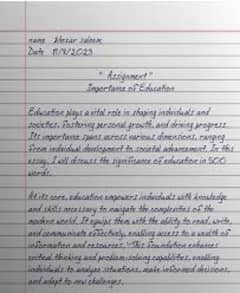 name khizar saleem
Date 17/4/2023
" Assignment"
Importance of Education
Education plays a vital role in shaping individuals and
societies, fostering personal growth, and driving progress.
Its importance spans across various dimensions, ranging
from individual development to societal advancement. In this
essay, I will discuss the significance of education in 500
words.
At its core, education empowers individuals with knowledge
and skills necessary to navigate the complexities of the
modern world. It equips them with the ability to read, write,
and communicate effectively, enabling access to a wealth of
information and resources. This foundation enhances
critical thinking and problem-solving capabilities, enabling
individuals to analyze situations, make informed decisions,
and adapt to new challenges.